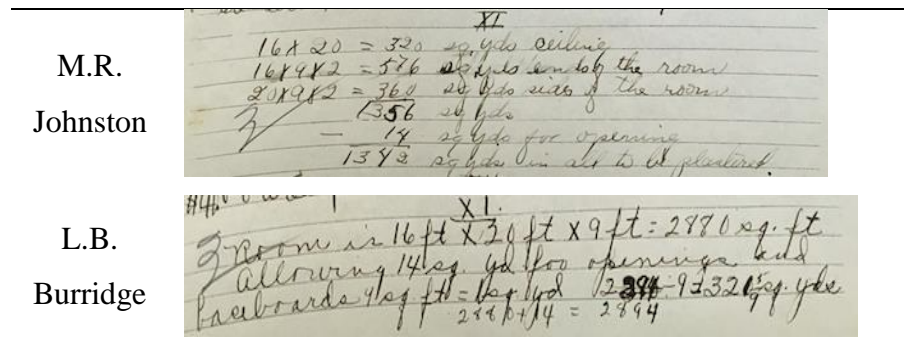 XI
M.R.
Johnston
16 X 20 = 320 sq. yds ceiling
16 X 9 X 2 = 576 sq yds ends of the room
20X9X2 = 360 sq yds sides of the room
1356 sq yds
- 14 sq yds for opening
1342 sq yds in all to be plastered.
L.B.
Burridge
XI.
Room is 16 ft X 20 ft X 9 ft = 2880 sq. ft
Allowing 14 sq. yd for openings and
baseboards 9 sq ft = 1 sq yd 2894 ÷ 9 = 321 5/9 sq. yds
2880 + 14 = 2894